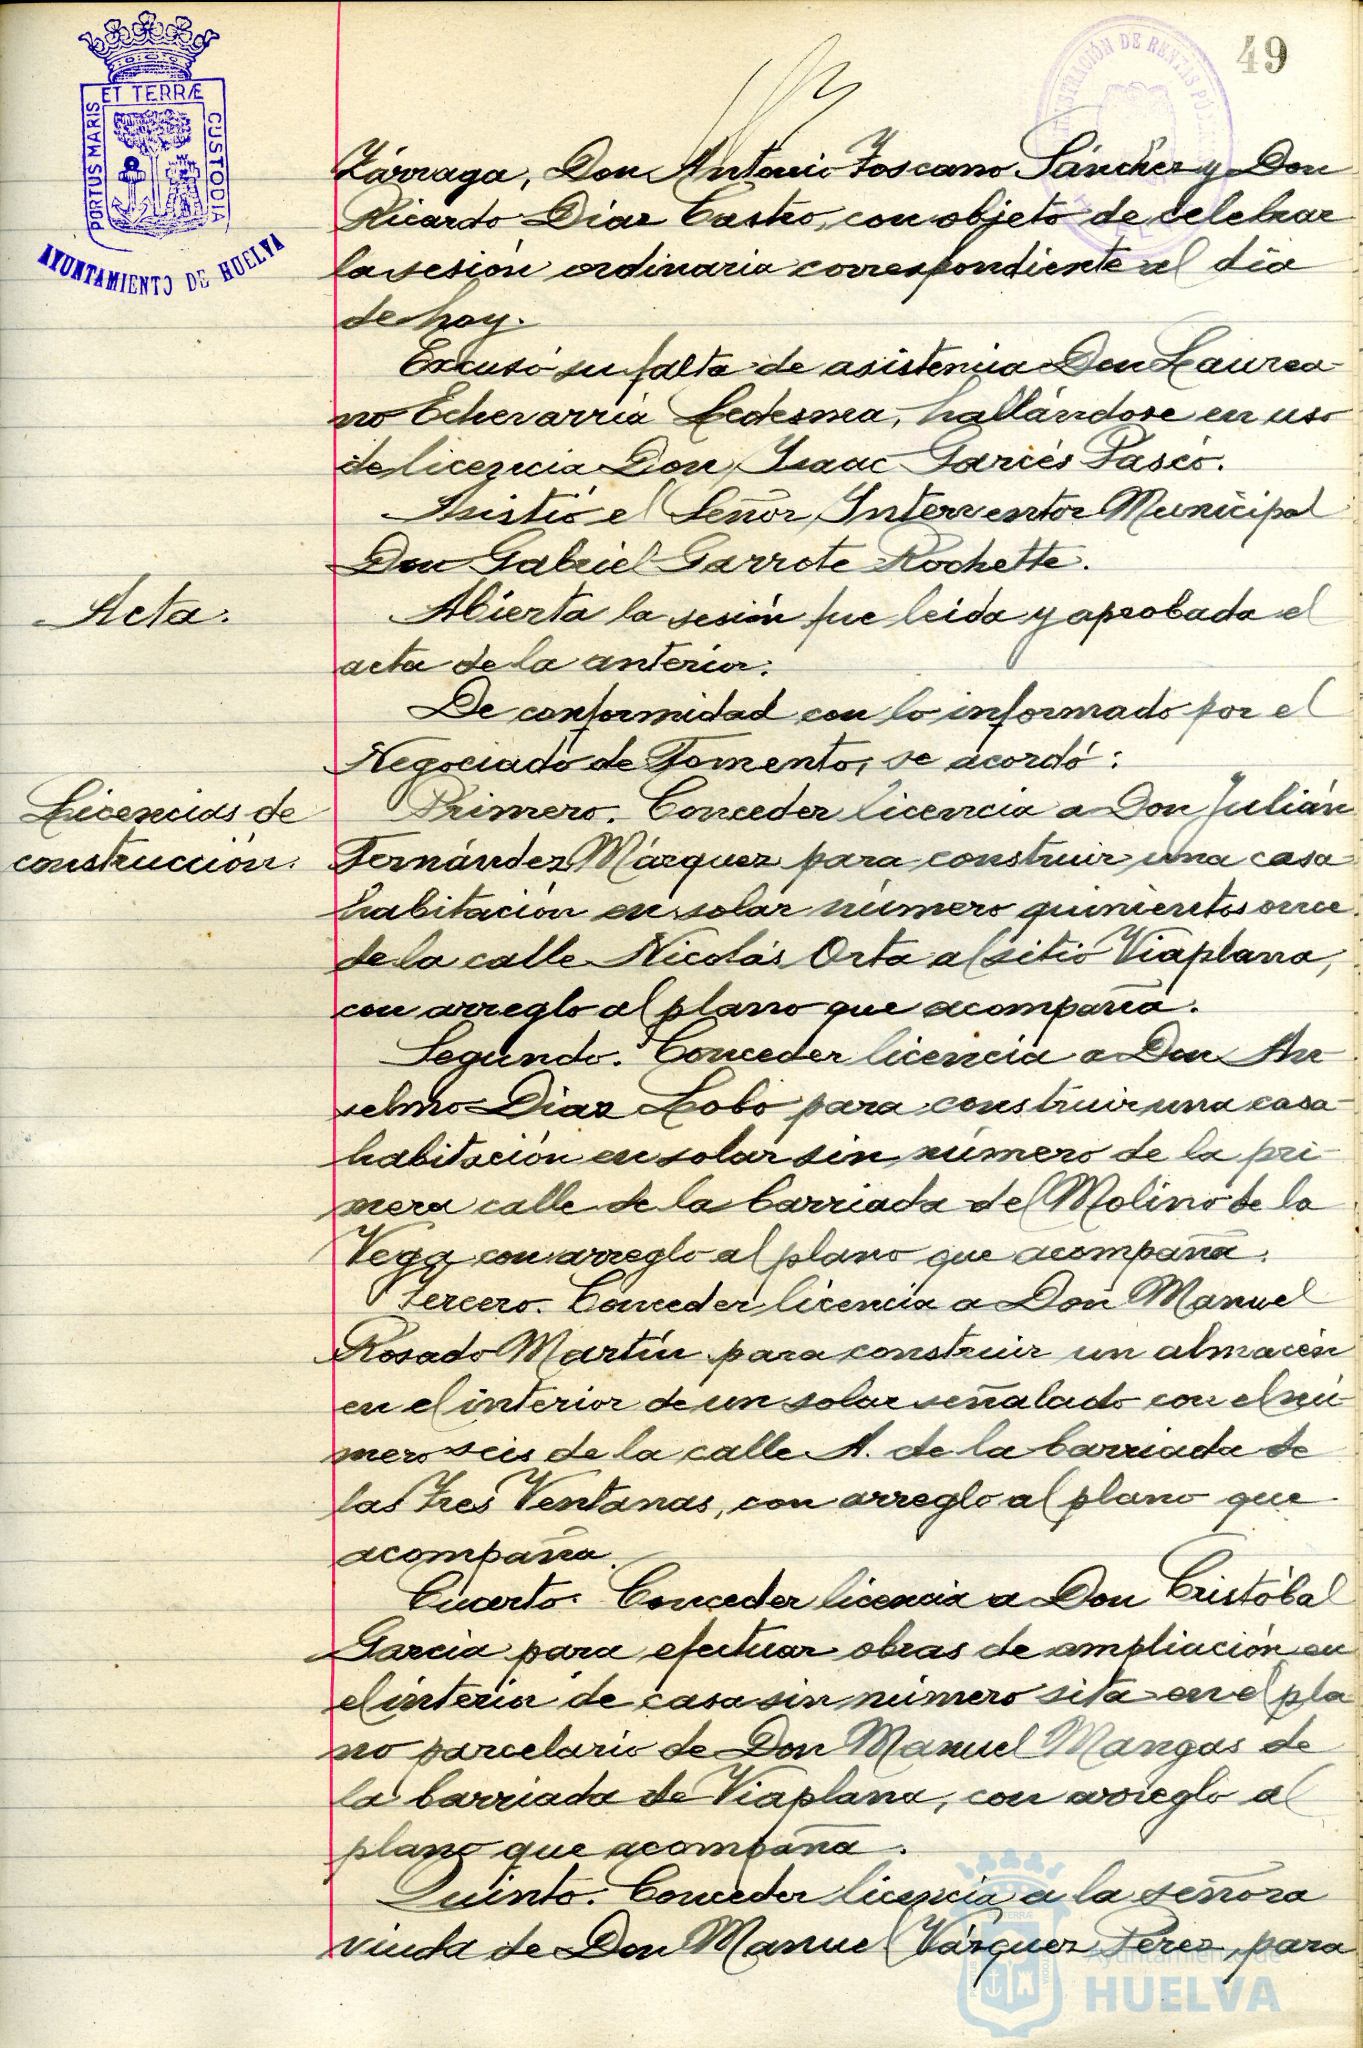 49
PORTUS MARIS
ET TERRÆ
CUSTODIA
AYUNTAMIENTO DE HUELVA
Zárraga, Don Antonio Toscano Sánchez y Don
Ricardo Díaz Castro, con objeto de celebrar
la sesión ordinaria correspondiente al día
de hoy.
Excusó su falta de asistencia Don Laurea-
no Echevarría Ledesma, hallándose en uso
de licencia Don Isaac Garcés Pascó.
Asistió el Señor Interventor Municipal
Don Gabriel Garrote Rochette.
Acta.
Abierta la sesión fue leida y aprobada el
acta de la anterior.
De conformidad con lo informado por el
Negociado de Fomento, se acordó:
Licencias de
construcción.
Primero. Conceder licencia a Don Julián
Fernández Márquez para construir una casa
habitación en solar número quinientos once
de la calle Nicolás Orta al sitio Viaplana,
con arreglo al plano que acompaña.
Segundo. Conceder licencia a Don An
selmo Diaz Lobo para construir una casa
habitación en solar sin número de la pri-
mera calle de la barriada del Molino de la
Vega con arreglo al plano que acompaña.
Tercero. Conceder licencia a Don Manuel
Rosado Martín para construir un almacén
en el interior de un solar señalado con el nú-
mero seis de la calle A. de la barriada de
las Tres Ventanas, con arreglo al plano que
acompaña.
Cuarto. Conceder licencia a Don Cristóbal
García para efectuar obras de ampliación en
el interior de casa sin número sita en el pla
no parcelario de Don Manuel Mangas de
la barriada de Viaplana, con arreglo al
plano que acompaña.
Quinto. Conceder licencia a la señora
viuda de Don Manuel Vázquez Pérez, para
Ayuntamiento de
HUELVA